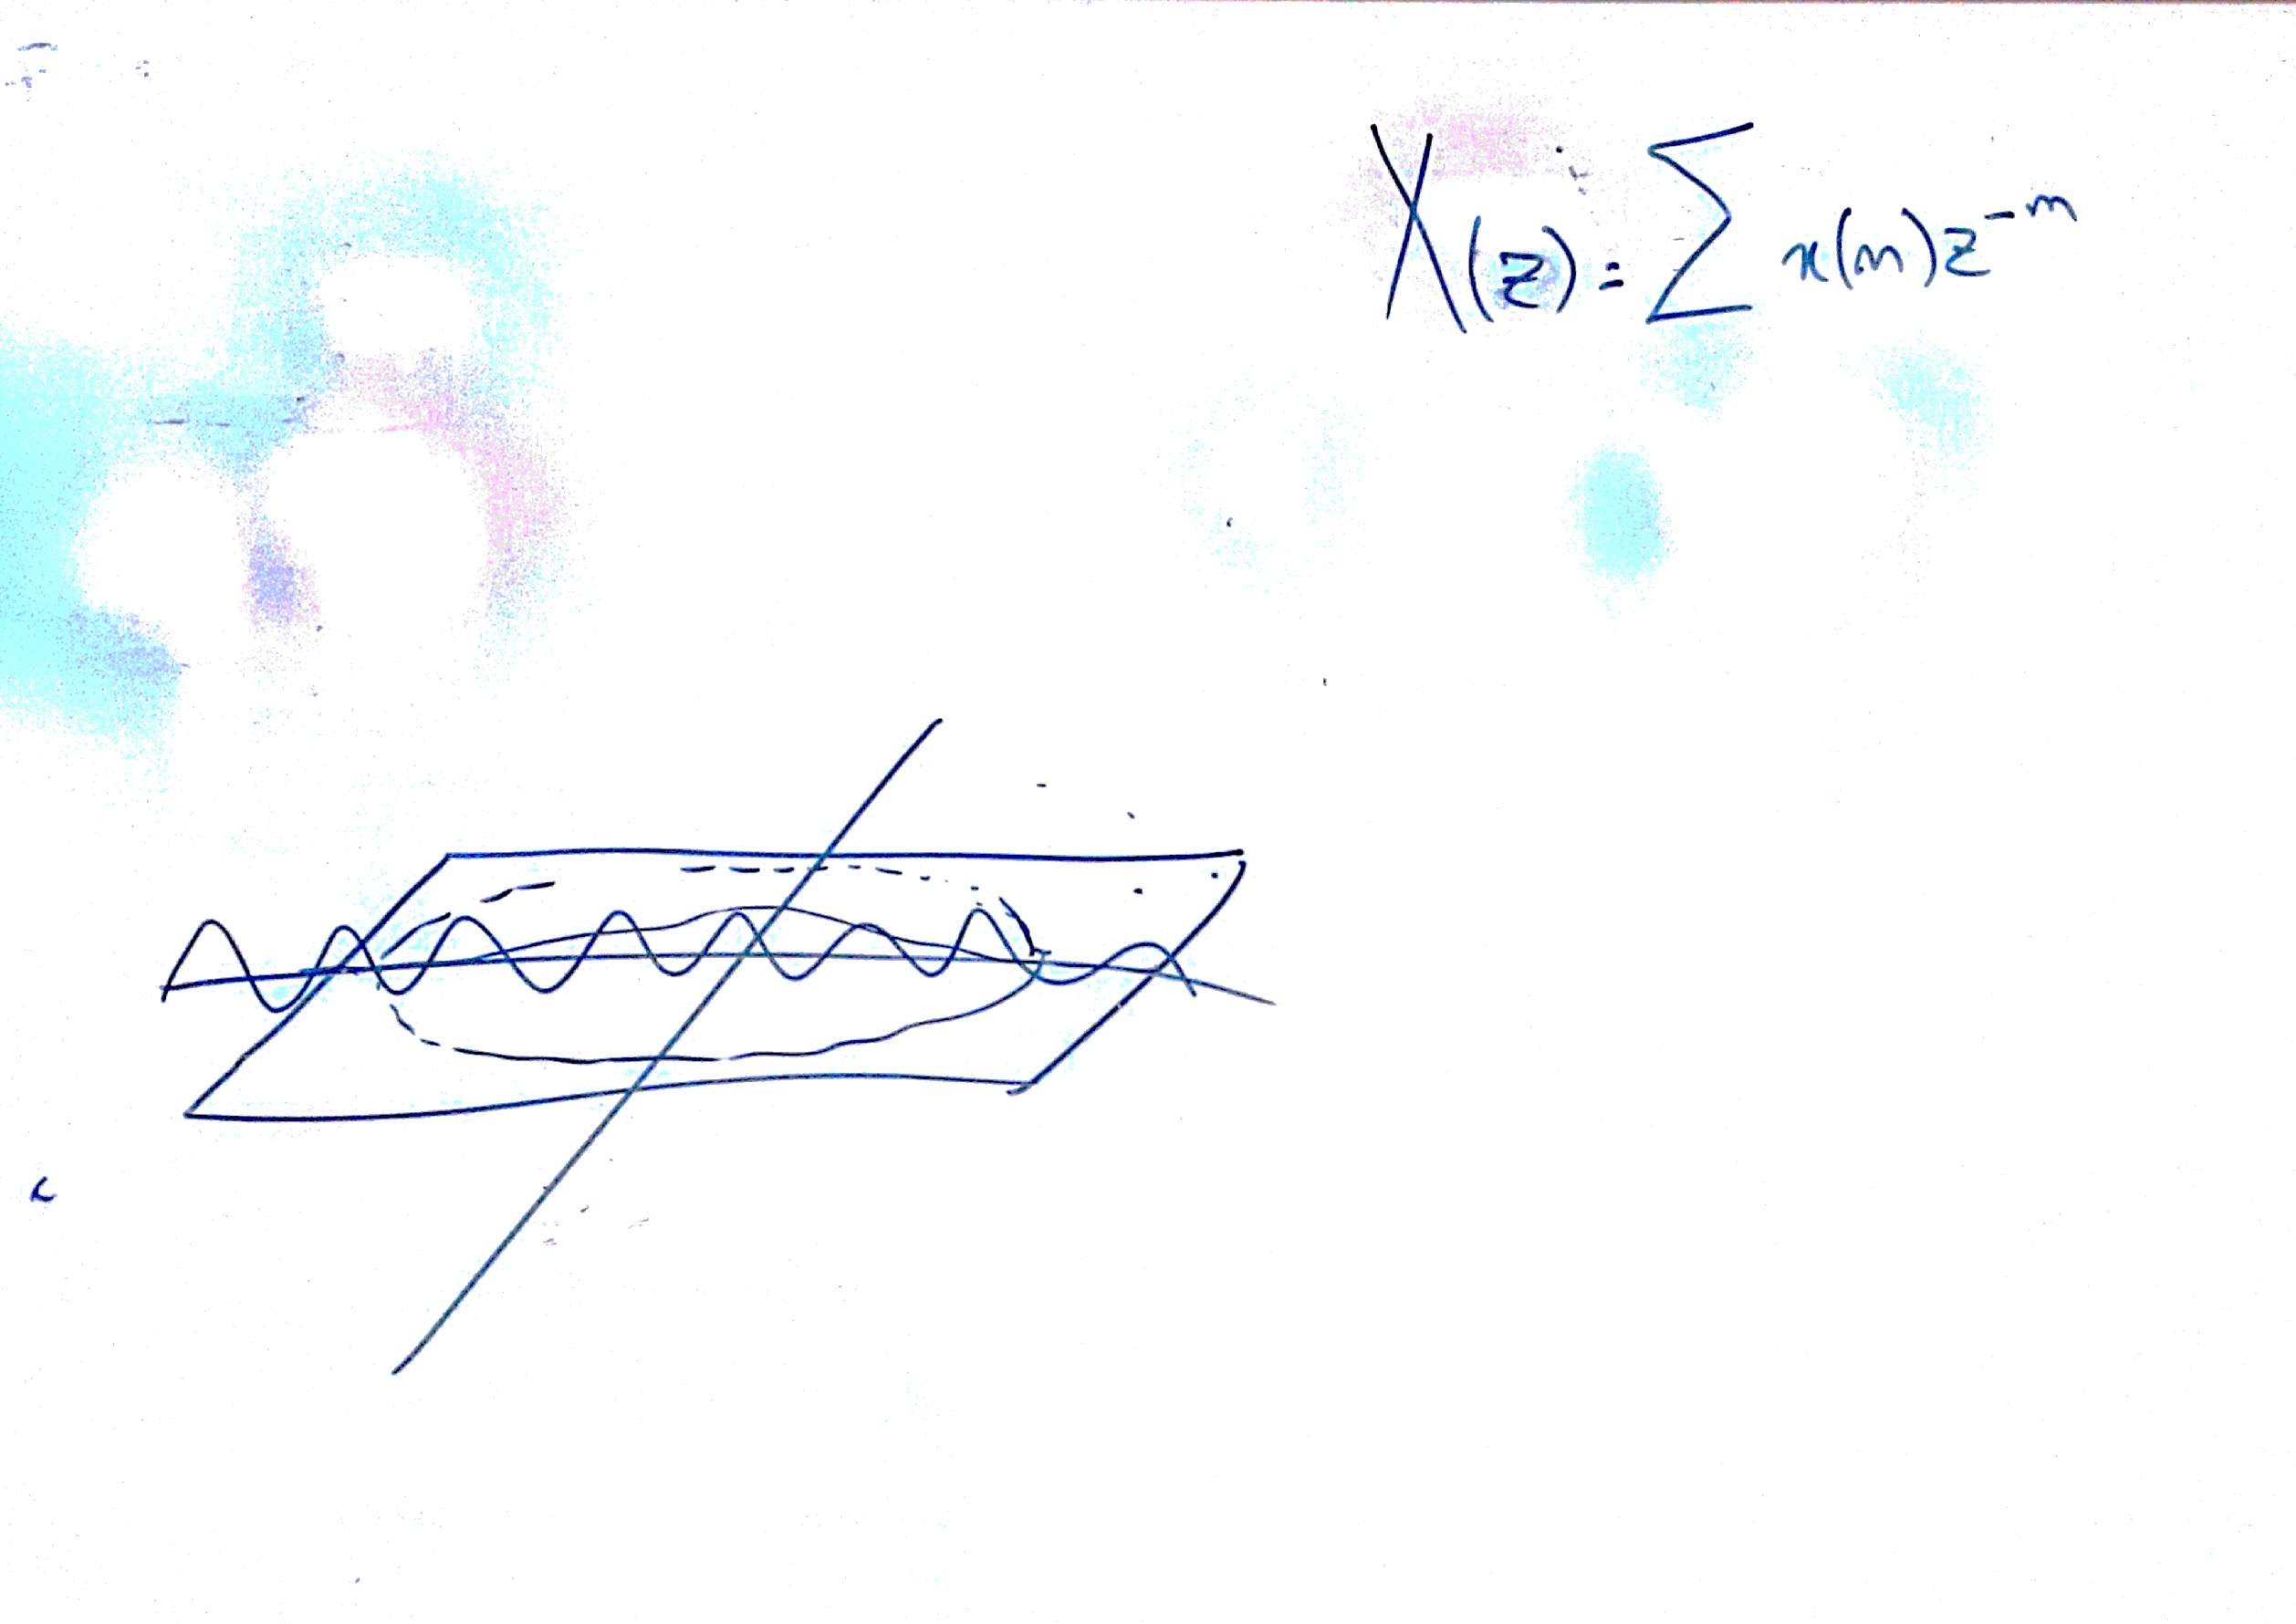 X(z) = ∑ x(n)z⁻ⁿ